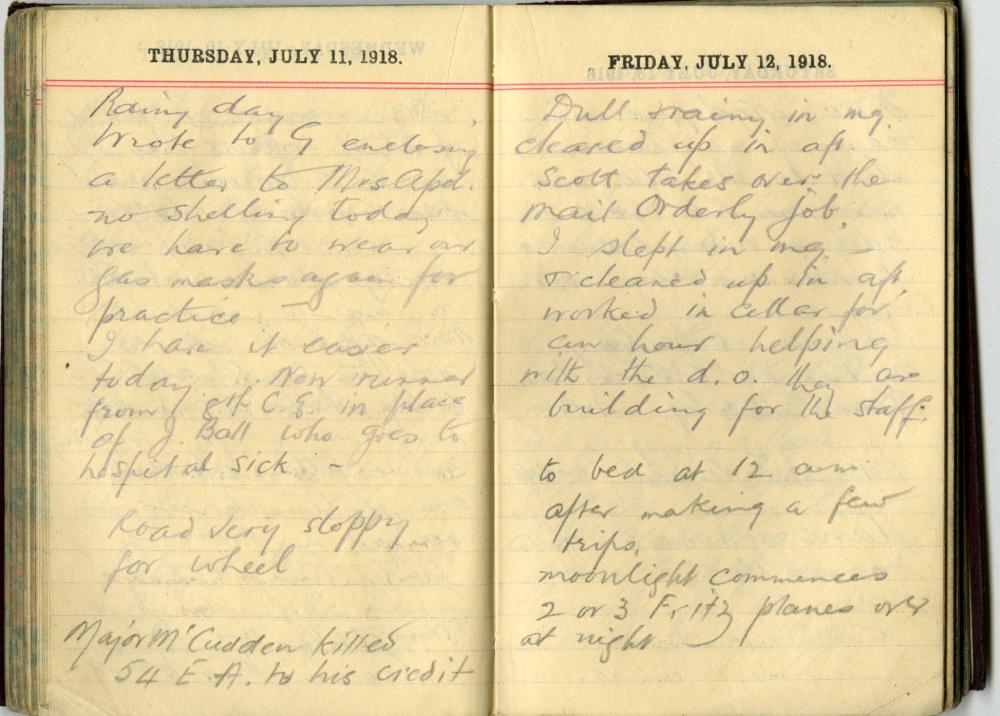 THURSDAY, JULY 11, 1918.
Rainy day
Wrote to G enclosing
a letter to Mrs Apd.
no shelling today
we have to wear our
gas masks again for
practice
I have it easier
today. New runner
from 8th C.E. in place
of J. Ball who goes to
hospital sick. -
Road very sloppy
for wheel
Major McCudden killed
54 E.A. to his credit
FRIDAY, JULY 12, 1918.
Dull & rainy in mg.
cleared up in aft.
Scott takes over the
mail Orderly job.
I slept in mg.
& cleaned up in aft
worked in cellar for
an hour helping
with the d.o. they are
building for the staff.
to bed at 12 am
after making a few
trips.
moonlight commences
2 or 3 Fritz planes over
at night